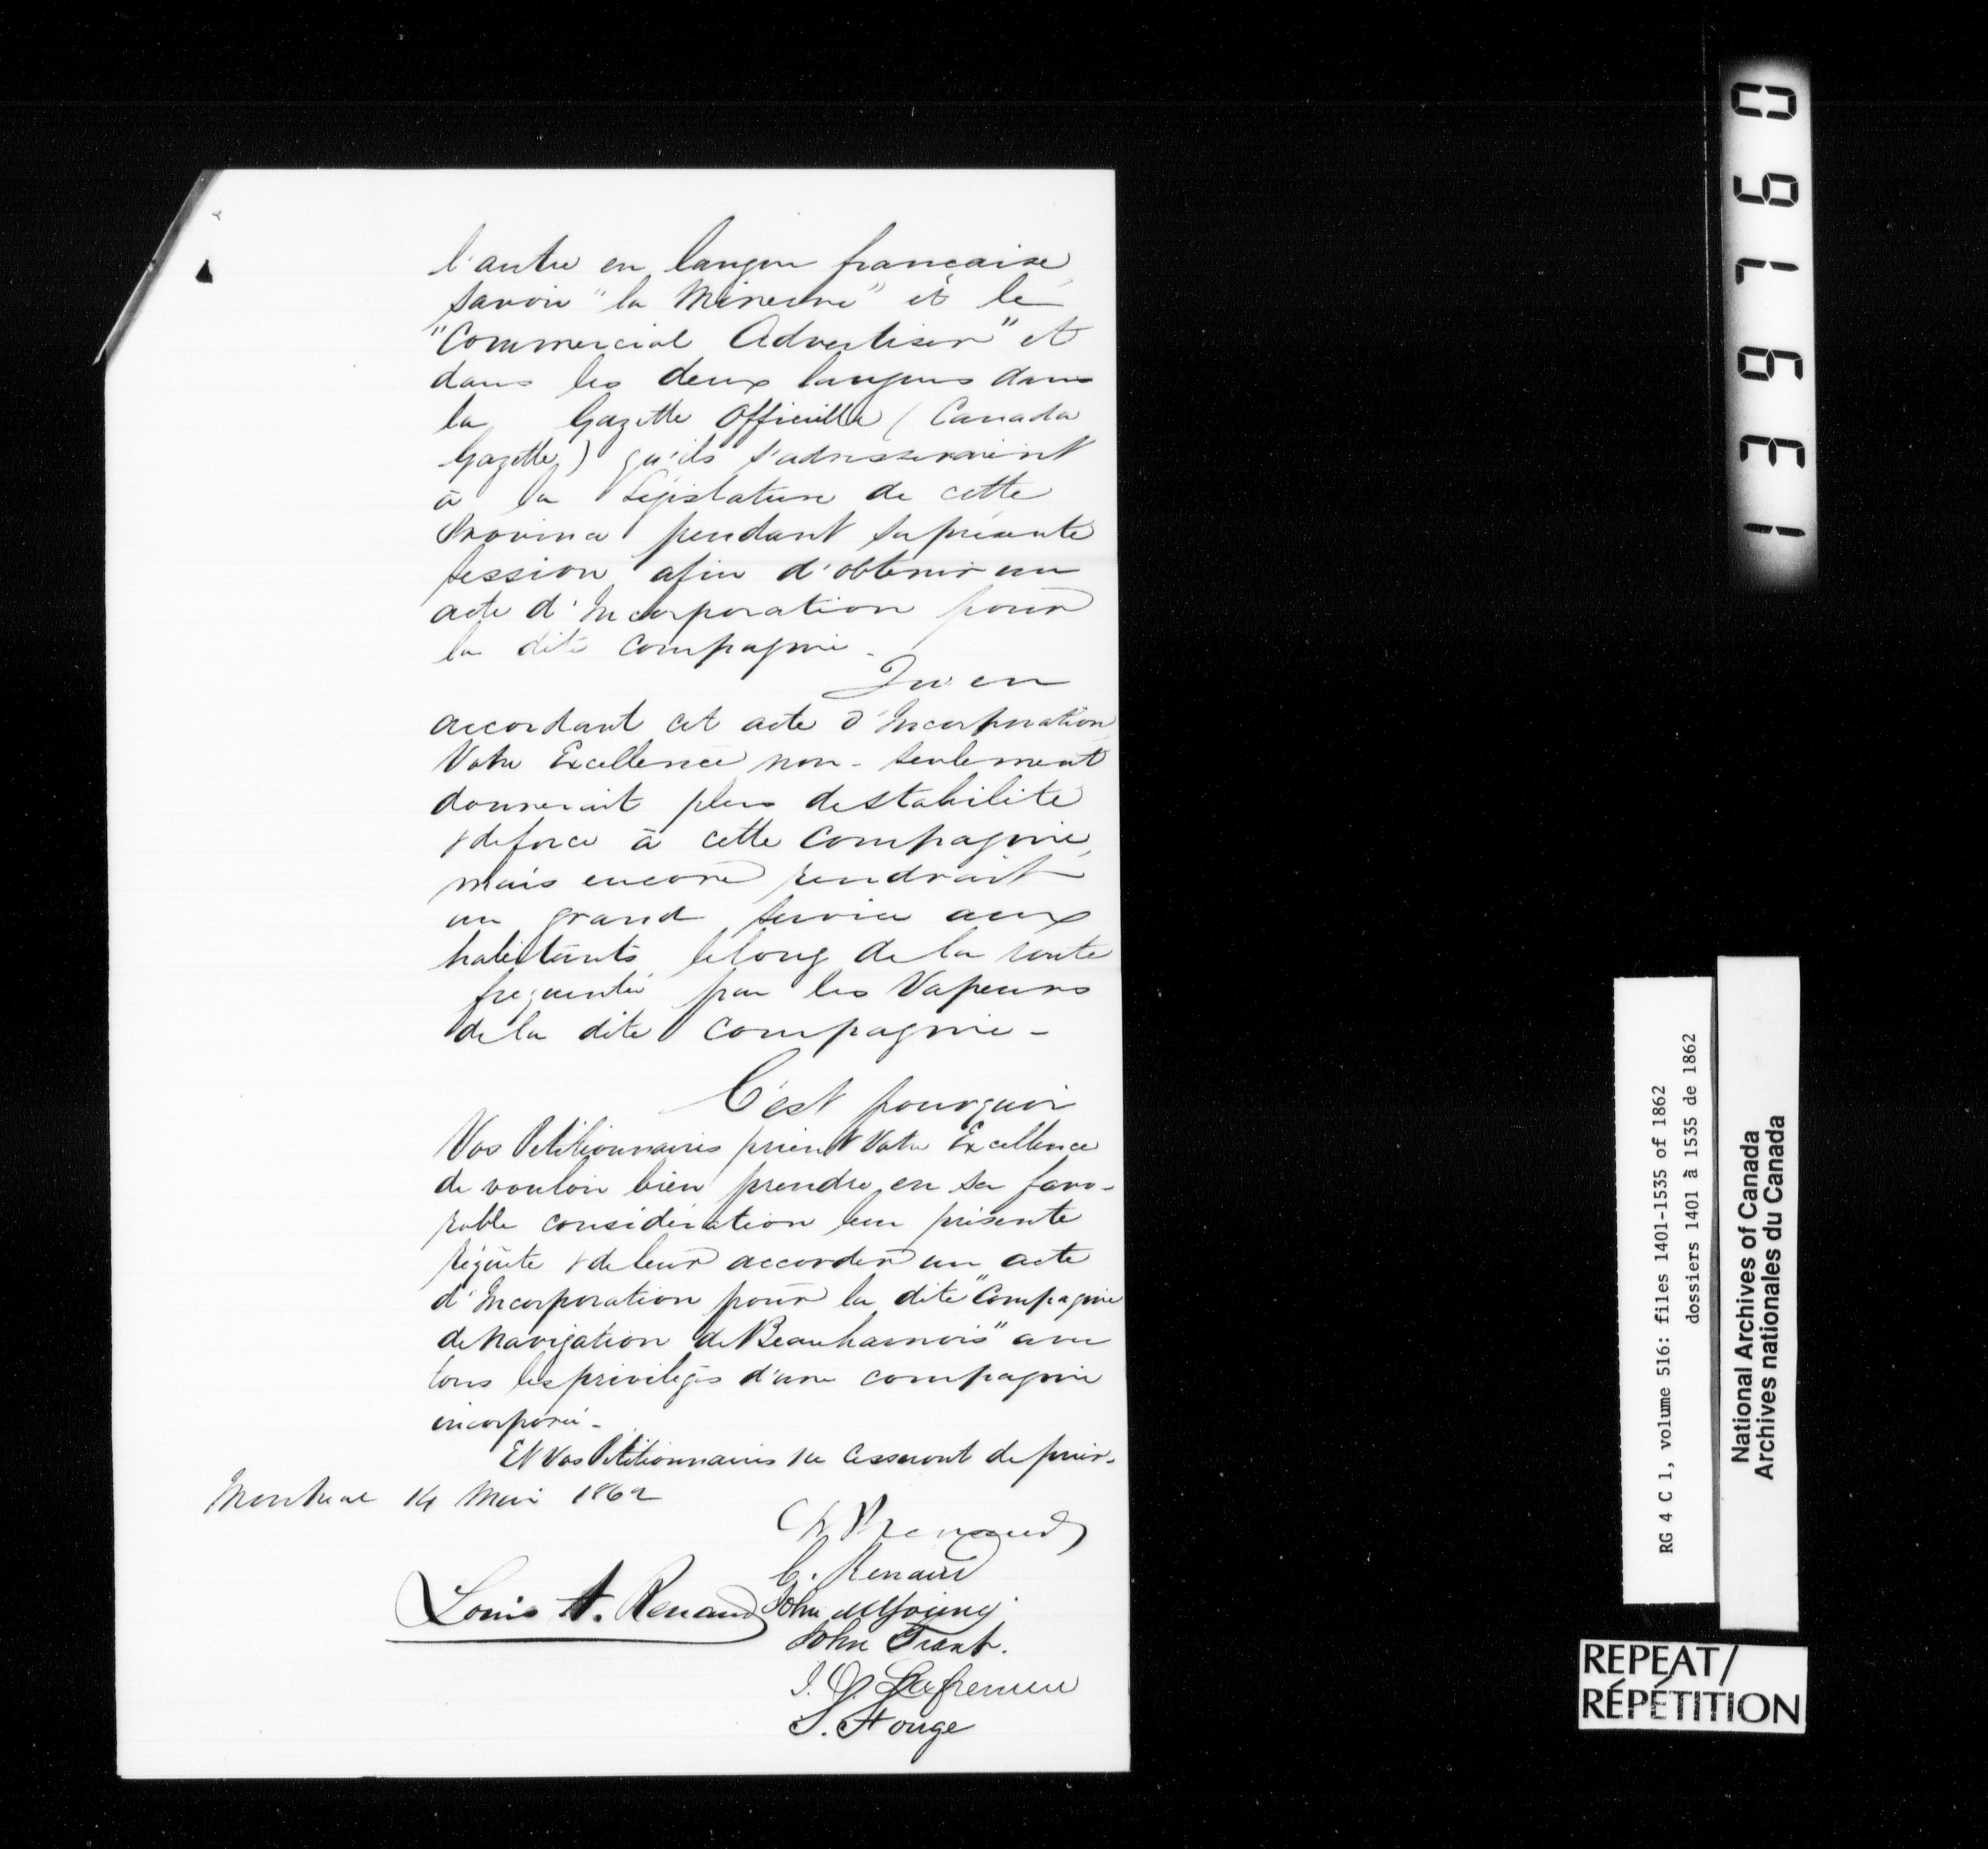 l'autre en langue francaise
savoir "la Minerve" et le
"Commercial Advertiser" et
dans les deux langues dans
la Gazette Officielle (Canada
Gazette) qu'ils s'adresseraient
à la Législature de cette
Province pendant sa présente
session afin d'obtenir un
acte d'Incorporation pour
la dite Compagnie.
Qu'en
accordant cet acte d'Incorporation,
Votre Excellence non-seulement
donnerait plus de stabilité
& de force à cette Compagnie,
mais encore rendrait
un grand service aux
habitants le long de la route
frequentée par les Vapeurs
de la dite Compagnie -
C'est pourquoi
Vos Petitionnaires prient Votre Excellence
de vouloir bien prendre en sa favo-
rable considération leur présente
réquête & de leur accorder un acte
d'Incorporation pour la dite "Compagnie
de Navigation de Beauharnois" avec
tous les priviléges d'une compagnie
incorporée -
Et Vos Petitionnaires ne cesseront de prier.
Montreal 14 Mai 1862
Renaud
C. Renaud
Louis A. Renaud
John McGoun
John Grant.
Lafreniere
S. St onge
1361960
RG 4 C 1, volume 516: files 1401-1535 of 1862
dossiers 1401 à 1535 de 1862
National Archives of Canada
Archives nationales du Canada
REPEAT/
RÉPÉTITION